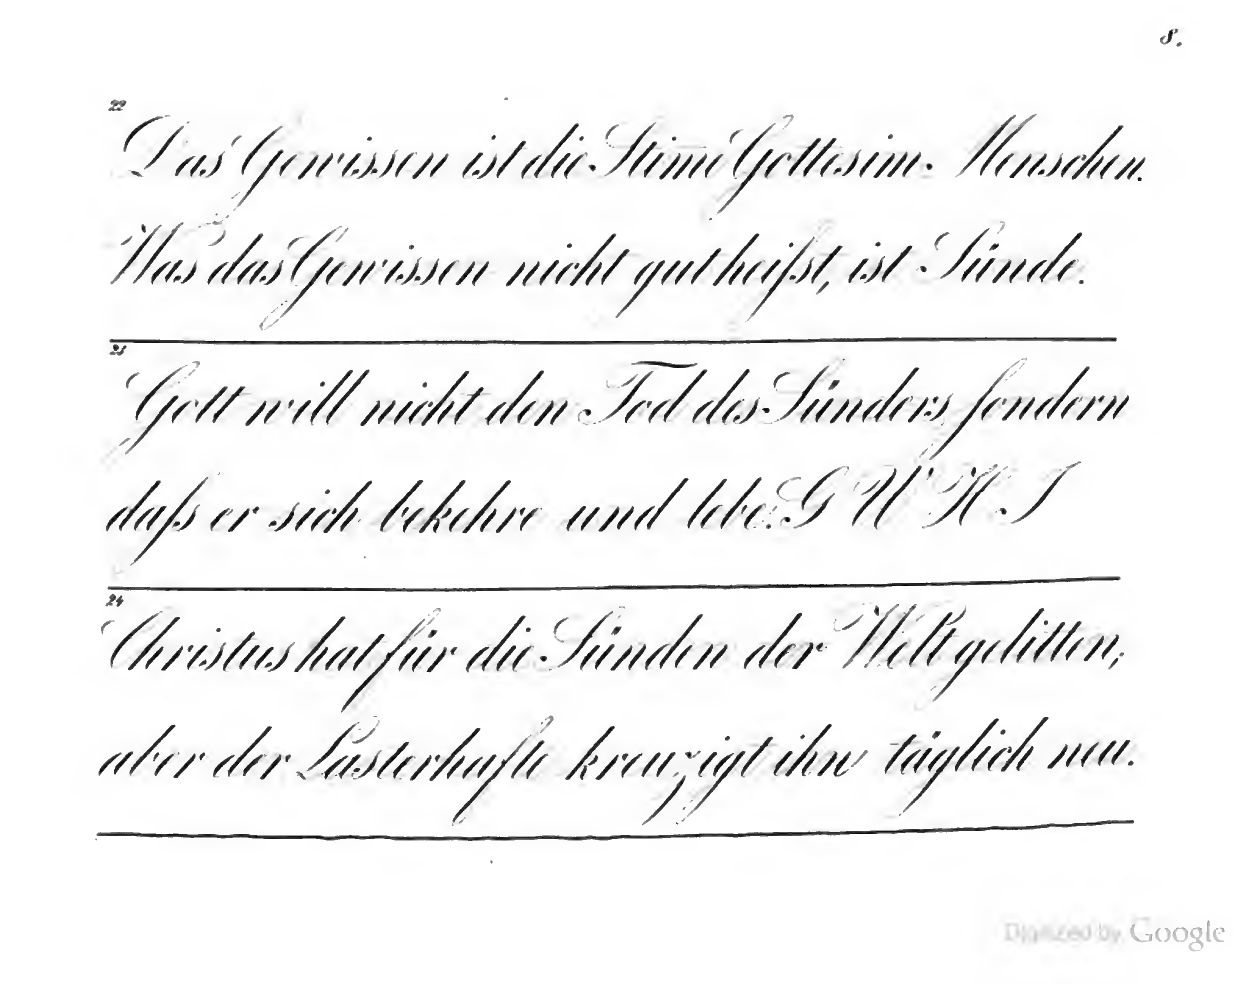 8.
22
Das Gewissen ist die Stim̄e Gottes im Menschen.
Was das Gewissen nicht gut heißt, ist Sünde.
23
Gott will nicht den Tod des Sünders, sondern
daß er sich bekehre und lebe. G W H I
24
Christus hat für die Sünden der Welt gelitten;
aber der Lasterhafte kreuzigt ihn täglich neu.
Digitized by Google